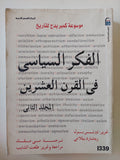 موسوعة كمبريدج للتاريخ
الفكر السياسي
في القرن العشرين
المجلد الثاني
تحرير: تيرنس بول
وريتشارد بيللامي
ترجمة: مي مقلد
مراجعة وتحرير: طلعت الشايب
1339